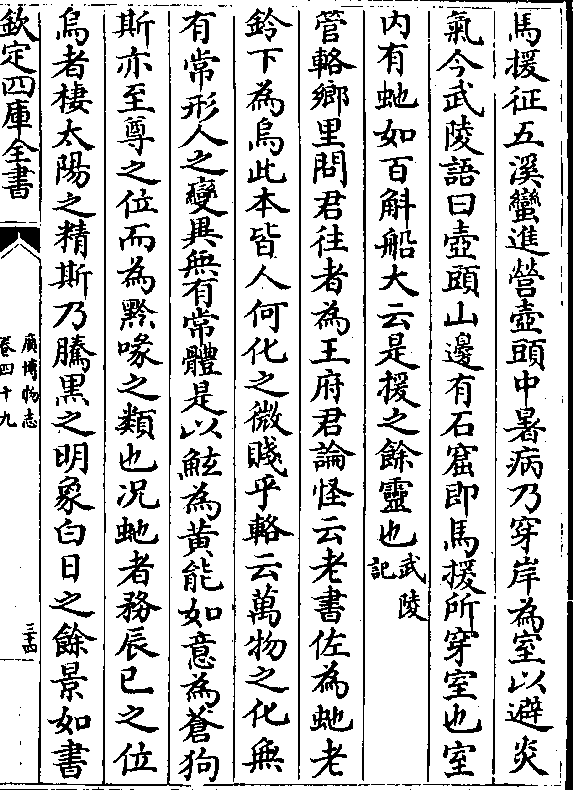 馬援征五溪蠻進營壺頭中暑病乃穿岸為室以避炎
氣今武陵語曰壺頭山邊有石窟即馬援所穿室也室
内有虵如百斛船大云是援之餘靈也武陵記
管輅鄉里問君往者為王府君論怪云老書佐為虵老
鈴下為烏此本皆人何化之微賤乎輅云萬物之化無
有常形人之變異無有常體是以鮌為黄能如意為蒼狗
斯亦至尊之位而為黔喙之類也况虵者務辰巳之位
烏者棲太陽之精斯乃騰黑之明象白日之餘景如書
欽定四庫全書
廣博物志
卷四十九
三十四